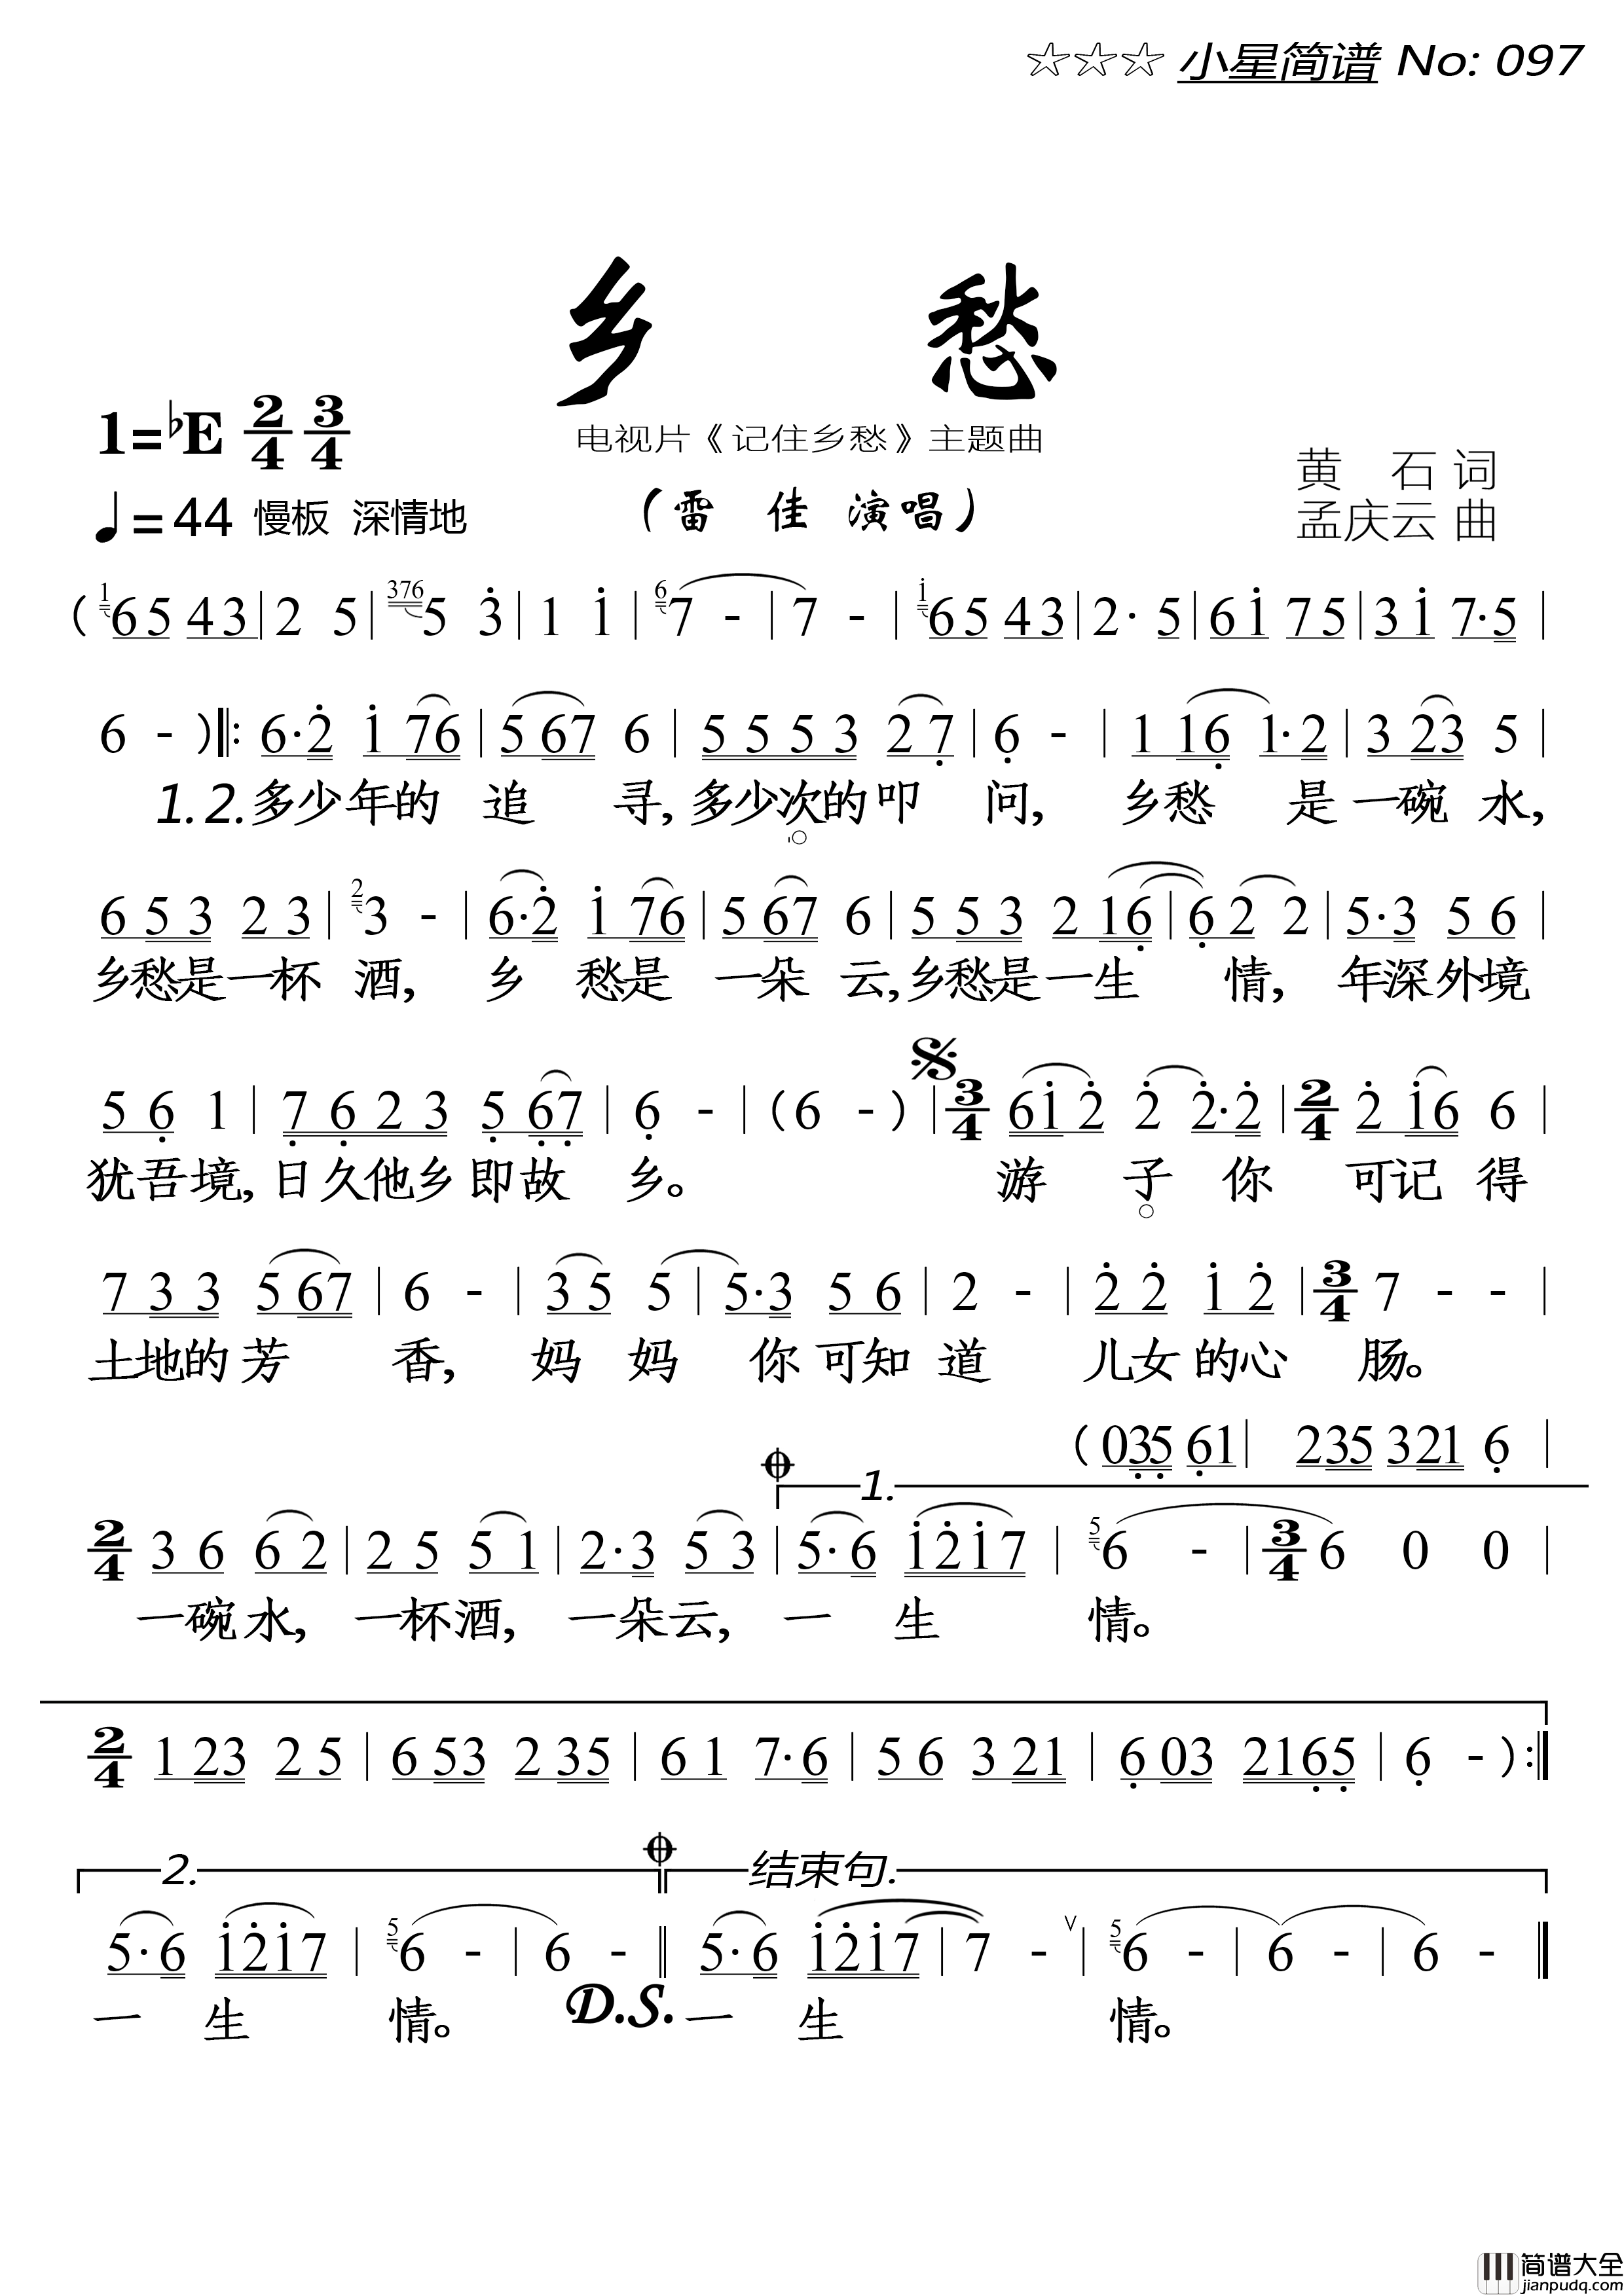 ☆☆☆ 小星简谱 No: 097
乡 愁
1=♭E 2/4 3/4
电视片《记住乡愁》主题曲
黄 石 词
♩=44 慢板 深情地
（雷 佳 演唱）
孟庆云 曲
( 1 6 5 4 3 | 2 5 | 376 5 3 | 1 1 | 6 7 - | 7 - | 1 6 5 4 3 | 2· 5 | 6 1 7 5 | 3 1 7· 5 |
6 - ) ‖: 6· 2 1 7 6 | 5 6 7 6 | 5 5 5 3 2 7 | 6 - | 1 1 6 1· 2 | 3 2 3 5 |
1. 2. 多少年的 追 寻, 多少次的 叩 问, 乡愁 是一碗 水,
6 5 3 2 3 | 2 3 - | 6· 2 1 7 6 | 5 6 7 6 | 5 5 3 2 1 6 | 6 2 2 | 5· 3 5 6 |
乡愁是一杯 酒, 乡 愁是 一朵 云, 乡愁是一生 情, 年深外境
5 6 1 | 7 6 2 3 5 6 7 | 6 - | ( 6 - ) | 3/4 6 1 2 2 2· 2 | 2/4 2 1 6 6 |
犹吾境, 日久他乡即故 乡。 游 子 你 可记 得
7 3 3 5 6 7 | 6 - | 3 5 5 | 5· 3 5 6 | 2 - | 2 2 1 2 | 3/4 7 - - |
土地的芳 香, 妈 妈 你可知 道 儿女的心 肠。
( 0 3 5 6 1 | 2 3 5 3 2 1 6 |
1.
2/4 3 6 6 2 | 2 5 5 1 | 2· 3 5 3 | 5· 6 1 2 1 7 | 5 6 - | 3/4 6 0 0 |
一碗水, 一杯酒, 一朵云, 一 生 情。
2/4 1 2 3 2 5 | 6 5 3 2 3 5 | 6 1 7· 6 | 5 6 3 2 1 | 6 0 3 2 1 6 5 | 6 - ) :‖
2. 结束句.
5· 6 1 2 1 7 | 5 6 - | 6 - ‖ 5· 6 1 2 1 7 | 7 - ∨ | 5 6 - | 6 - | 6 - ‖
一 生 情。 D.S. 一 生 情。
简谱大全
jianpudq.com